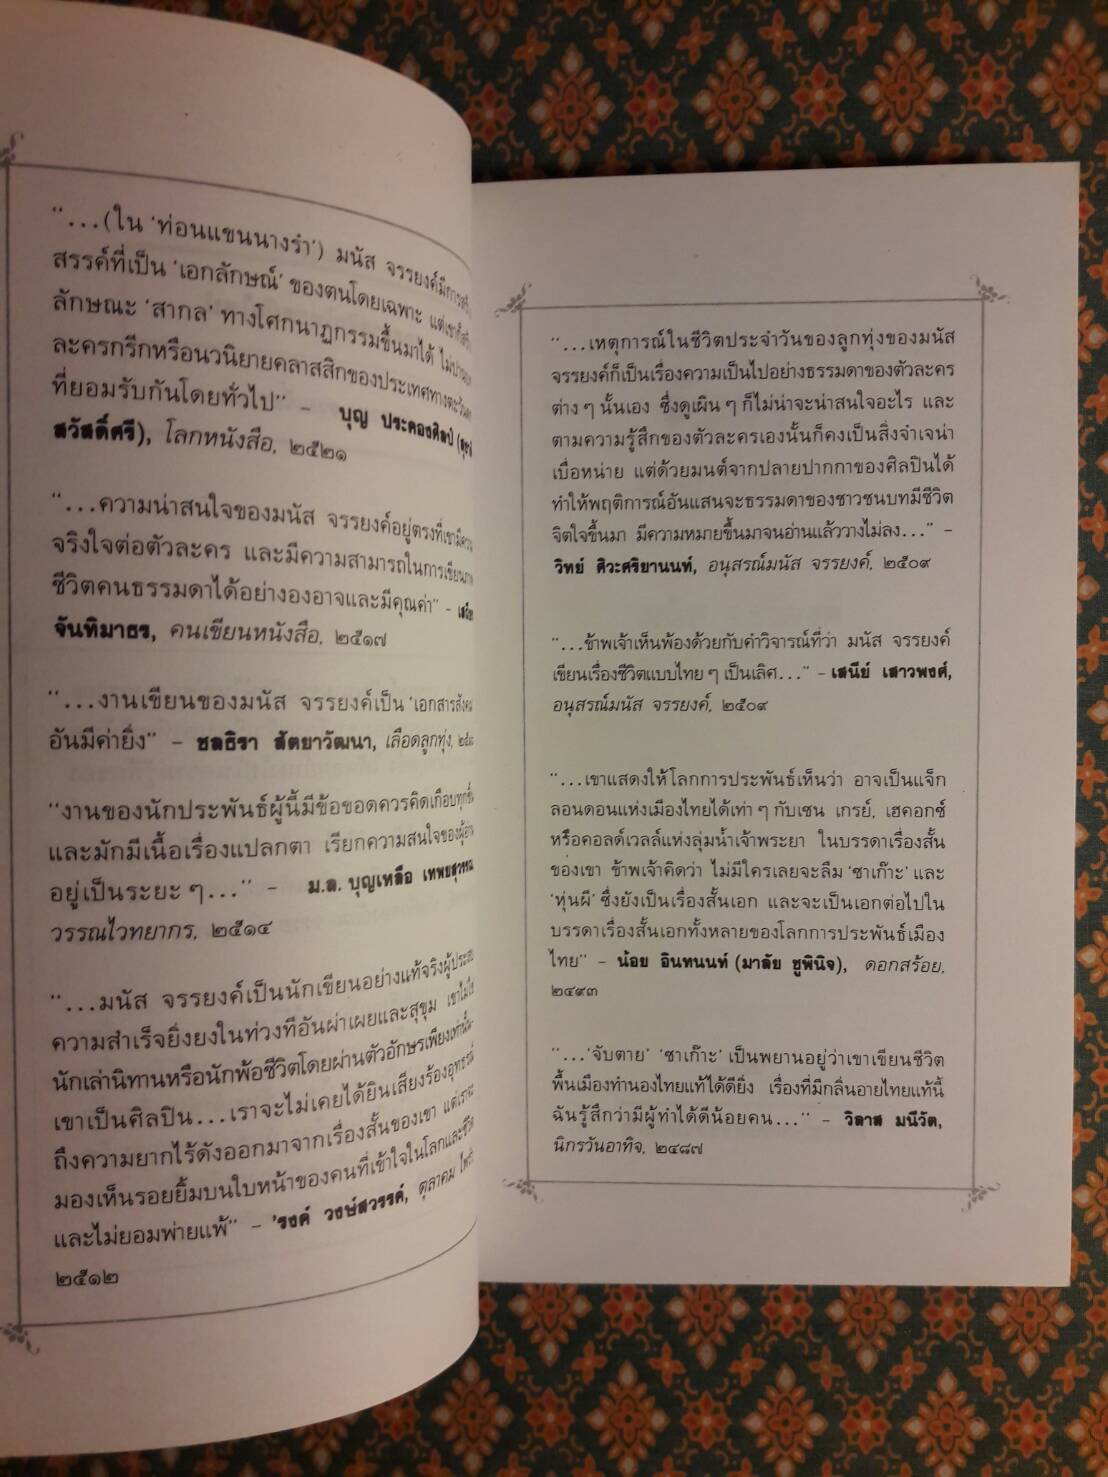 “...(ใน ‘ท่อนแขนนางรำ’) มนัส จรรยงค์มีการ
สรรค์ที่เป็น ‘เอกลักษณ์’ ของตนโดยเฉพาะ
ลักษณะ ‘สากล’ ทางโศกนาฏกรรมขึ้นมาได้
ละครกรีกหรือนวนิยายคลาสสิกของประเทศทางตะวันตก
ที่ยอมรับกันโดยทั่วไป” – บุญ ประคองศิลป์
สวัสดิ์ศรี), โลกหนังสือ, ๒๕๒๑
“...ความน่าสนใจของมนัส จรรยงค์อยู่ตรงที่เขามีความ
จริงใจต่อตัวละคร และมีความสามารถในการเขียนภาพ
ชีวิตคนธรรมดาได้อย่างองอาจและมีคุณค่า” –
จันทิมาธร, คนเขียนหนังสือ, ๒๕๑๗
“...งานเขียนของมนัส จรรยงค์เป็น ‘เอกสารสังคม
อันมีค่ายิ่ง” – ชลธิรา สัตยาวัฒนา, เลือดลูกทุ่ง,
“งานของนักประพันธ์ผู้นี้มีข้อขอดควรคิดเกือบทุกชิ้น
และมักมีเนื้อเรื่องแปลกตา เรียกความสนใจของผู้อ่าน
อยู่เป็นระยะ ๆ...” – ม.ล. บุญเหลือ เทพยสุวรรณ
วรรณไวทยากร, ๒๕๑๔
“...มนัส จรรยงค์เป็นนักเขียนอย่างแท้จริงผู้ประสบ
ความสำเร็จยิ่งยงในท่วงทีอันผ่าเผยและสุขุม เขาไม่ใช่
นักเล่านิทานหรือนักพ้อชีวิตโดยผ่านตัวอักษรเพียงเท่านั้น–
เขาเป็นศิลปิน...เราจะไม่เคยได้ยินเสียงร้องอุทธรณ์
ถึงความยากไร้ดังออกมาจากเรื่องสั้นของเขา แต่เราจะ
มองเห็นรอยยิ้มบนใบหน้าของคนที่เข้าใจในโลกและชีวิต
และไม่ยอมพ่ายแพ้” – ’รงค์ วงษ์สวรรค์, ตุลาคม
๒๕๑๒
“...เหตุการณ์ในชีวิตประจำวันของลูกทุ่งของมนัส
จรรยงค์ก็เป็นเรื่องความเป็นไปอย่างธรรมดาของตัวละคร
ต่าง ๆ นั้นเอง ซึ่งดูเผิน ๆ ก็ไม่น่าจะน่าสนใจอะไร และ
ตามความรู้สึกของตัวละครเองนั้นก็คงเป็นสิ่งจำเจน่า
เบื่อหน่าย แต่ด้วยมนต์จากปลายปากกาของศิลปินได้
ทำให้พฤติการณ์อันแสนจะธรรมดาของชาวชนบทมีชีวิต
จิตใจขึ้นมา มีความหมายขึ้นมาจนอ่านแล้ววางไม่ลง...” –
วิทย์ ศิวะศริยานนท์, อนุสรณ์มนัส จรรยงค์, ๒๕๐๙
“...ข้าพเจ้าเห็นพ้องด้วยกับคำวิจารณ์ที่ว่า มนัส จรรยงค์
เขียนเรื่องชีวิตแบบไทย ๆ เป็นเลิศ...” – เสนีย์ เสาวพงศ์,
อนุสรณ์มนัส จรรยงค์, ๒๕๐๙
“...เขาแสดงให้โลกการประพันธ์เห็นว่า อาจเป็นแจ็ก
ลอนดอนแห่งเมืองไทยได้เท่า ๆ กับเซน เกรย์, เฮคอกซ์
หรือคอลด์เวลล์แห่งลุ่มน้ำเจ้าพระยา ในบรรดาเรื่องสั้น
ของเขา ข้าพเจ้าคิดว่า ไม่มีใครเลยจะลืม ‘ซาเก๊าะ’ และ
‘หุ่นผี’ ซึ่งยังเป็นเรื่องสั้นเอก และจะเป็นเอกต่อไปใน
บรรดาเรื่องสั้นเอกทั้งหลายของโลกการประพันธ์เมือง
ไทย” – น้อย อินทนนท์ (มาลัย ชูพินิจ), ดอกสร้อย,
๒๔๙๓
“...‘จับตาย’ ‘ซาเก๊าะ’ เป็นพยานอยู่ว่าเขาเขียนชีวิต
พื้นเมืองทำนองไทยแท้ได้ดียิ่ง เรื่องที่มีกลิ่นอายไทยแท้นี้
ฉันรู้สึกว่ามีผู้ทำได้ดีน้อยคน...” – วิลาส มณีวัต,
นิกรวันอาทิจ, ๒๔๘๗